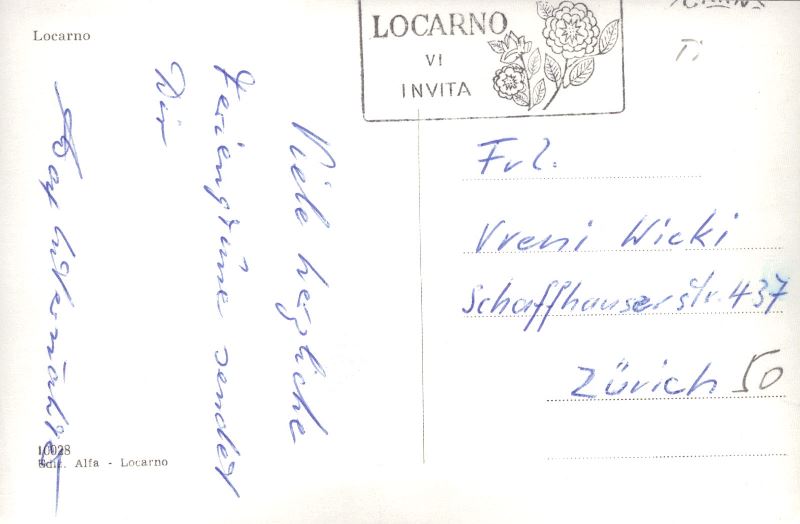 Locarno
LOCARNO
VI
INVITA
TI
Viele herzliche
Feriengrüsse sendet
Dir
Frl.
Vreni Wicki
Schaffhauserstr. 437
Zürich 50
10028
Edit. Alfa - Locarno